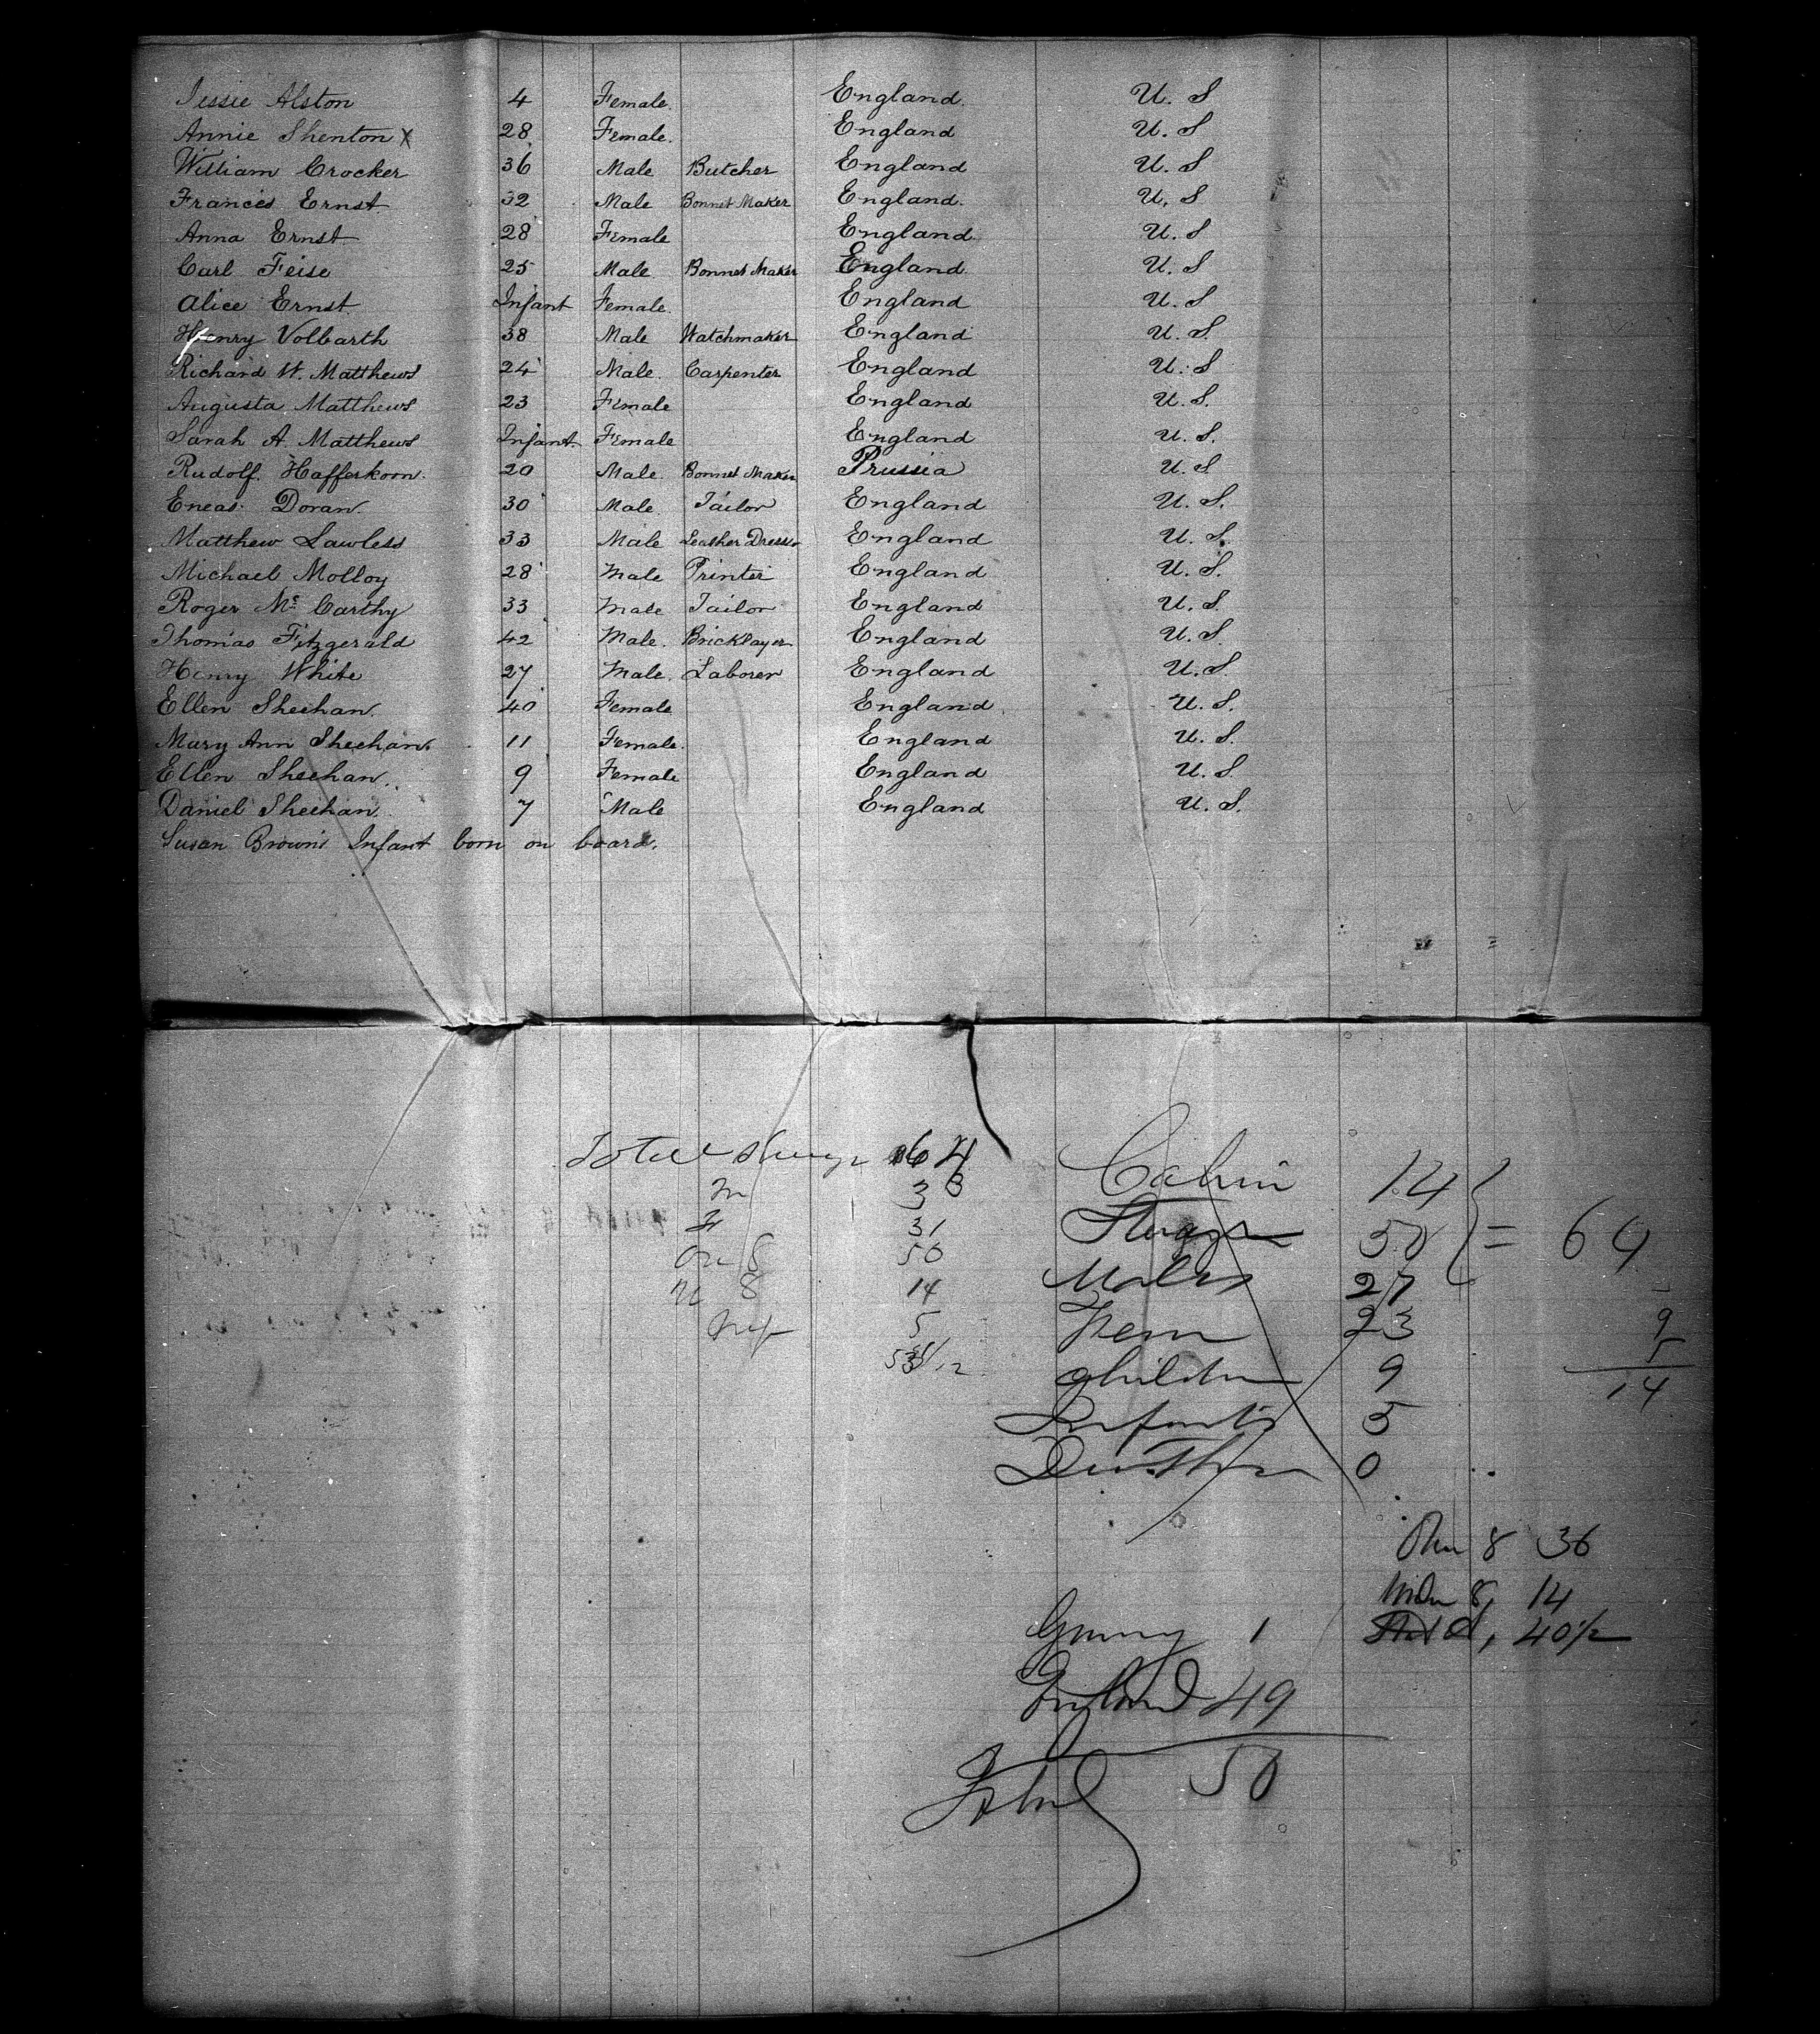 Jessie Alston 4 Female England U. S
Annie Shenton x 28 Female England U. S
William Crocker 36 Male Butcher England U. S
Frances Ernst 32 Male Bonnet Maker England U. S
Anna Ernst 28 Female England U. S
Carl Feise 25 Male Bonnet Maker England U. S
Alice Ernst Infant Female England U. S
Henry Volbarth 38 Male Watchmaker England U. S.
Richard W. Matthews 24 Male Carpenter England U. S
Augusta Matthews 23 Female England U. S.
Sarah A. Matthews Infant Female England U. S.
Rudolf Hafferkorn 20 Male Bonnet Maker Prussia U. S
Eneas Doran 30 Male Tailor England U. S.
Matthew Lawless 33 Male Leather Dresser England U. S.
Michael Molloy 28 Male Printer England U. S.
Roger Mc Carthy 33 Male Tailor England U. S.
Thomas Fitzgerald 42 Male Bricklayer England U. S.
Henry White 27 Male Laborer England U. S.
Ellen Sheehan 40 Female England U. S.
Mary Ann Sheehan 11 Female England U. S.
Ellen Sheehan 9 Female England U. S.
Daniel Sheehan 7 Male England U. S.
Susan Brown's Infant born on board.
Total 64
M 33
F 31
On 8 50
U 8 14
Inf 5
Cabin 14
Steerage 50 = 64
Males 27
Fem 23
Children 9
Infants 5
Deaths 0
9
5
14
Over 8 36
Under 8, 14
40 1/2
Germy 1
England 49
Total 50